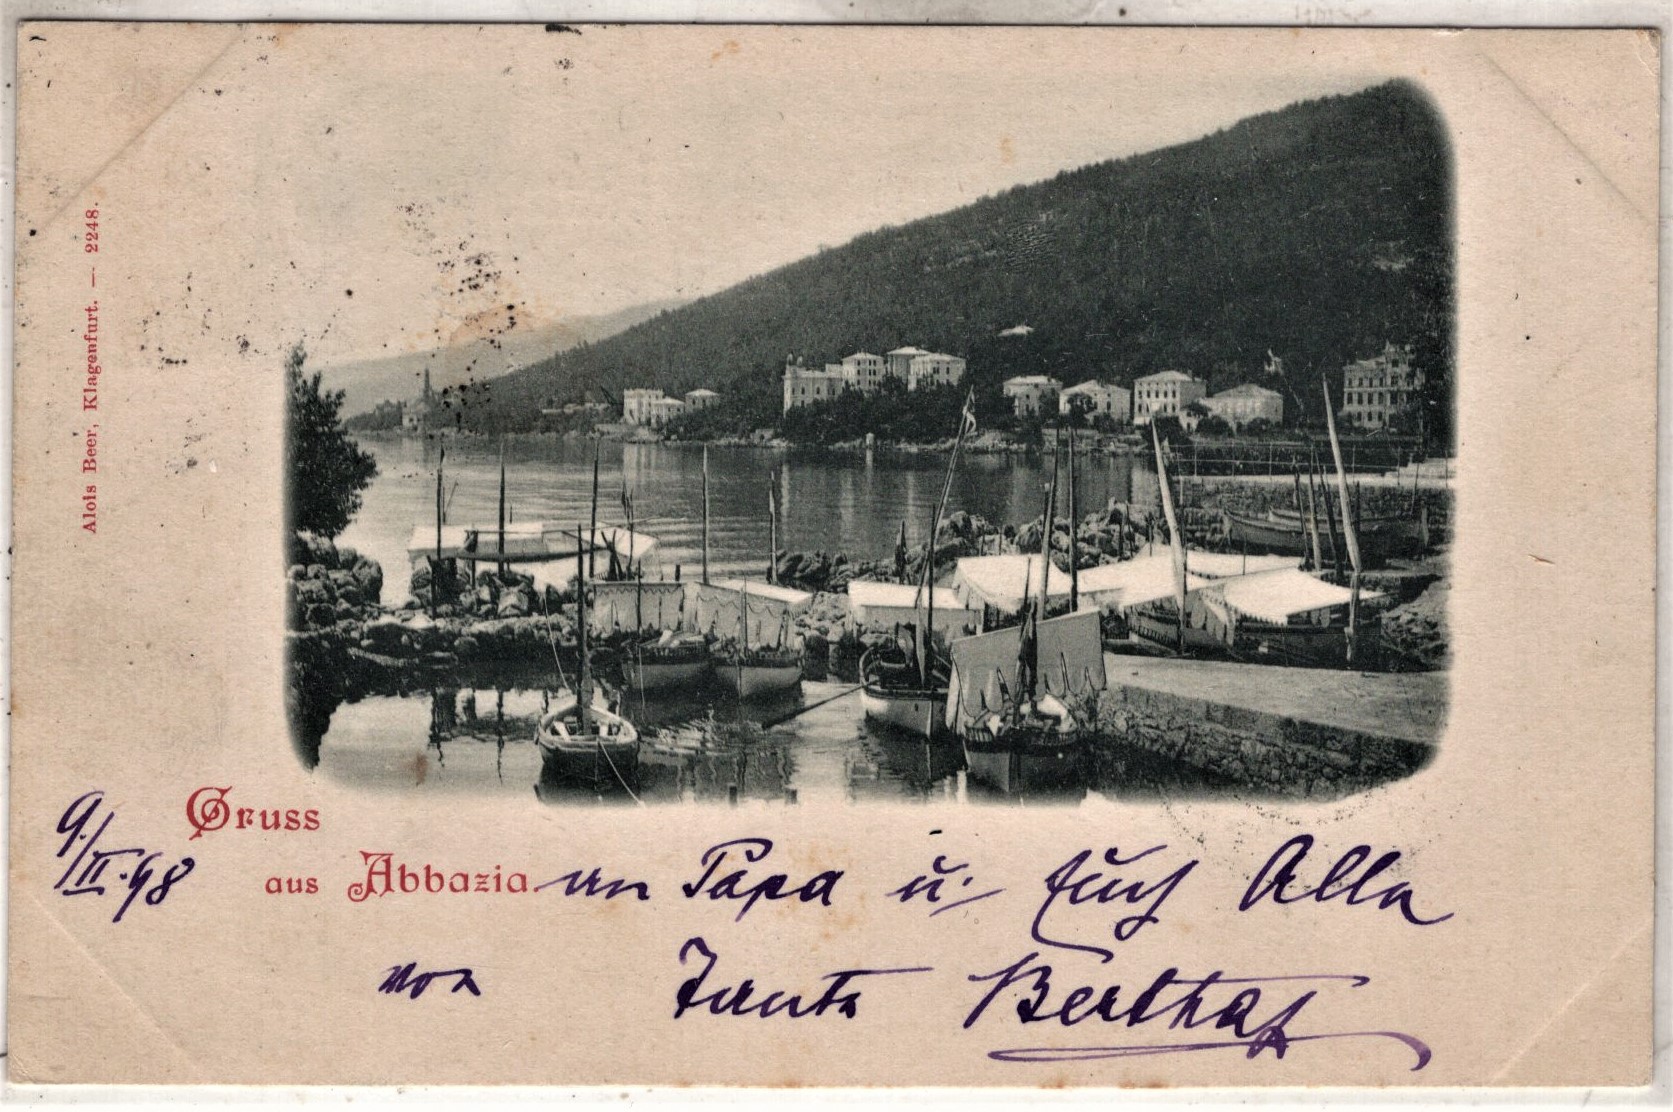 Alois Beer, Klagenfurt. — 2248.
Gruss
9./II.98
aus Abbazia an Papa u. Euch Alle
von Tante Bertha